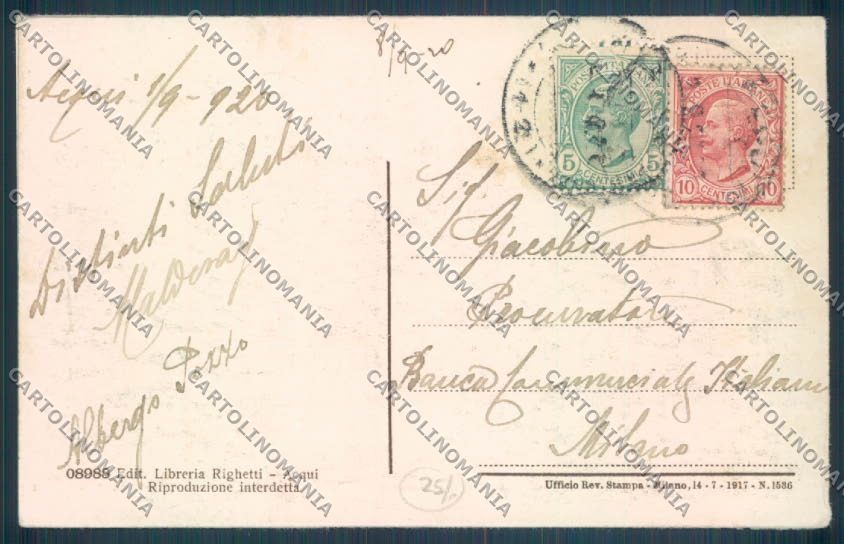 8/9-20
Acqui 1/9-920
Distinti Saluti
Albergo Pozzo
08988 Edit. Libreria Righetti - Acqui
Riproduzione interdetta
POSTE ITALIANE
5 5
CENTESIMI
POSTE ITALIANE
10 10
CENTESIMI
Sig.
Giacobino
Procuratore
Banca Commerciale Italiana
Milano
25/.
Ufficio Rev. Stampa - Milano, 14 - 7 - 1917 - N. 1586
CARTOLINOMANIA